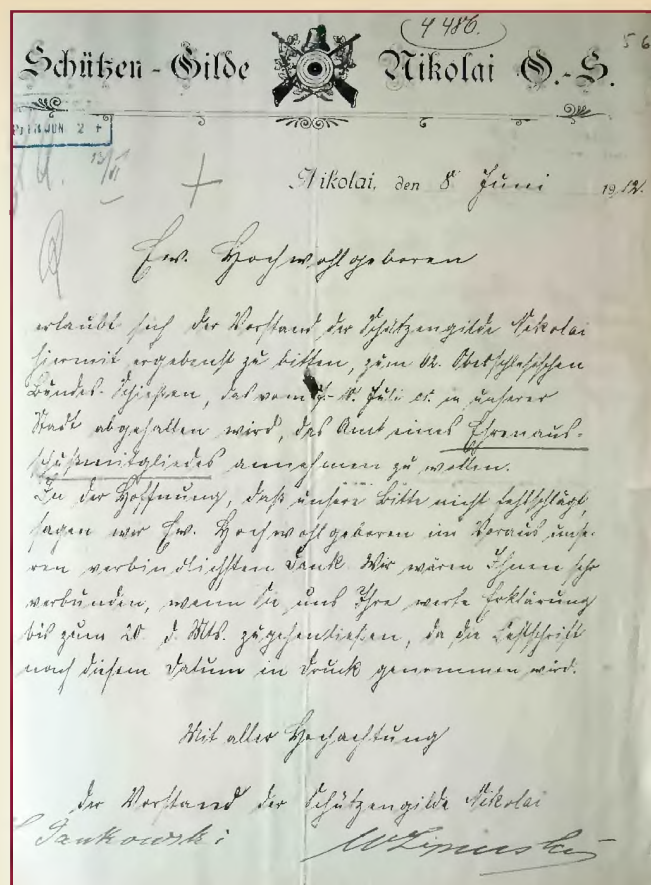 4 486.
56
Schützen-Gilde Nikolai O.-S.
JUN. 2
Nikolai, den 8. Juni 1912.
Ew. Hochwohlgeboren
erlaubt sich der Vorstand der Schützengilde Nikolai
hiermit ergebenst zu bitten, zum 12. Oberschlesischen
Bundes-Schießen, das vom 7.- Juli cr. in unserer
Stadt abgehalten wird, das Amt eines Ehrenaus-
schußmitgliedes annehmen zu wollen.
In der Hoffnung, daß unsere Bitte nicht fehlschlägt,
sagen wir Ew. Hochwohlgeboren im Voraus unse-
ren verbindlichsten Dank. Wir wären Ihnen sehr
verbunden, wenn Sie uns Ihre werte Erklärung
bis zum 20. d. Mts. zugehen ließen, da die Festschrift
nach diesem Datum in Druck genommen wird.
Mit aller Hochachtung
der Vorstand der Schützengilde Nikolai
Jankowski